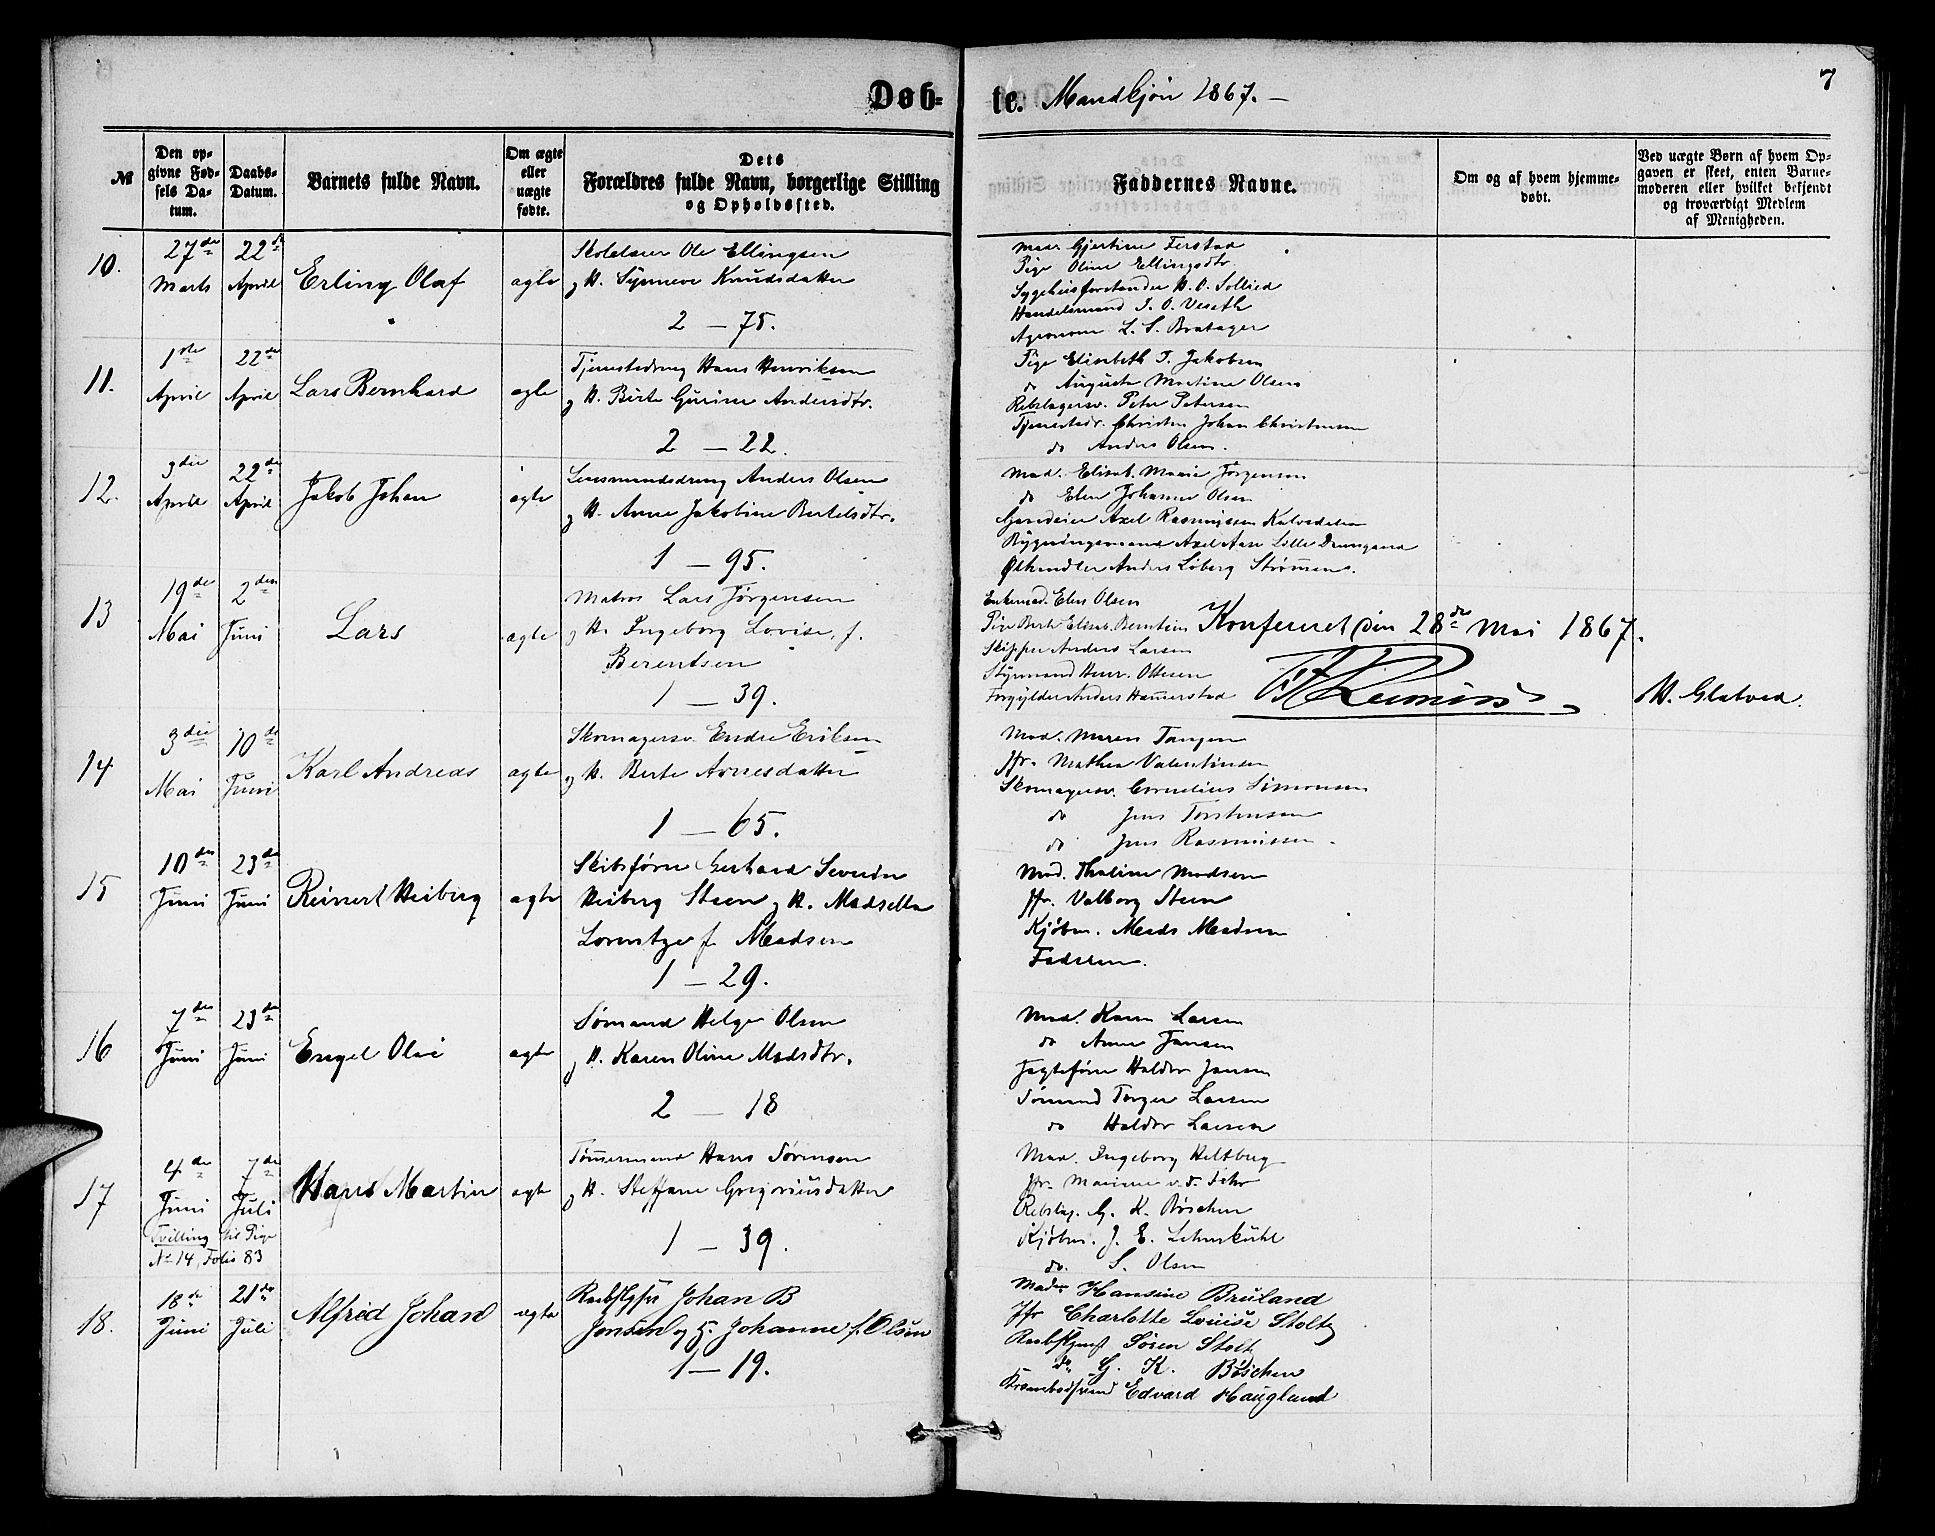 Døb-
te. Mandkjøn 1867.-
7
№
Den op-
givne Fød-
sels Da-
tum.
Daabs-
Datum.
Barnets fulde Navn.
Om ægte
eller
uægte
fødte.
Dets
Forældres fulde Navn, borgerlige Stilling
og Opholdssted.
Faddernes Navne.
Om og af hvem hjemme-
døbt.
Ved uægte Børn af hvem Op-
gaven er skeet, enten Barne-
moderen eller hvilket bekjendt
og troværdigt Medlem
af Menigheden.
10.
27de
Marts
22de
April
Erling Olaf
ægte
Skolelærer Ole Ellingsen
og H. Synneve Knudsdatter
2 - 75.
Mad. Gjertine Ferstad
Pige Oline Ellingsdtr.
Sygehusforstander H. O. Sollied
Handelsmand I. O. Veseth
Agronom L. S. Bratager
11.
1ste
April
22de
April
Lars Bernhard
ægte
Tjenestedreng Hans Henriksen
og H. Birte Gurine Andersdtr.
2 - 22.
Pige Elisabeth T. Jakobsen
do Augusta Martine Olsen
Rebslagersv. Peter Petersen
Tjenestedr. Christen Johan Christensen
do Anders Olsen.
12.
3die
April
22de
April
Jakob Johan
ægte
Lensmandsdreng Anders Olsen
og H. Anne Jakobine Bertelsdtr.
1 - 95.
Mad. Elisab. Marie Jørgensen
do Elen Johanne Olsen
Gaardeier Axel Rasmussen Kalvedalen
Bygningsmand Axel Aase Lille Damgaard
Ølhandler Anders Løberg Strømmen.
13
19de
Mai
2den
Juni
Lars
ægte
Matros Lars Jørgensen
og H. Ingeborg Lovise, f.
Berentsen
1 - 39.
Enkemad. Elen Olsen
Pige Berte Elisab. Berntsen
Skipper Anders Larsen
Styrmand Henr. Ottesen
Forgylder Anders Hamerstad
Konfereret den 28de Mai 1867.
H. Glatved.
14
3die
Mai
10de
Juni
Karl Andreas
ægte
Skomagersv. Endre Eriksen
og H. Berte Arnesdatter
1 - 65.
Mad. Maren Tangen
Jfr. Mathea Valentinsen
Skomagersv. Cornelius Simonsen
do Jens Torstensen
do Jens Rasmussen.
15
10de
Juni
23de
Juni
Reinert Heiberg
ægte
Skibsfører Gerhard Severin
Heiberg Steen og H. Madsella
Lorentze f. Madsen
1 - 29.
Mad. Thaline Madsen
Jfr. Valborg Steen
Kjøbm. Mads Madsen
Faderen.
16
7de
Juni
23de
Juni
Engel Olai
ægte
Sømand Helge Olsen
og H. Karen Oline Madsdtr.
2 - 18
Mad. Karen Larsen
do Anne Jansen
Jagtefører Haldor Jansen
Sømand Torger Larsen
do Haldor Larsen
17
4de
Juni
7de
Juli
Tvilling til Pige
№ 14, Folio 83
Hans Martin
ægte
Tømmermand Hans Sørensen
og H. Steffane Gregoriusdatter
1 - 39.
Mad. Ingeborg Heltberg
Jfr. Mariane v. d. Fehr
Rebslag. G. K. Bøschen
Kjøbm. J. E. Lehmkuhl
do. S. Olsen
18.
18de
Juni
21de
Juli
Alfred Johan
ægte
Johan B
Jensen og H. Johanne f. Olsen
1 - 19.
Mad. Hansine Bruland
Jfr Charlotte Louise Stoltz
Søren Stolt
do G. K. Bøschen
Edvard Haugland